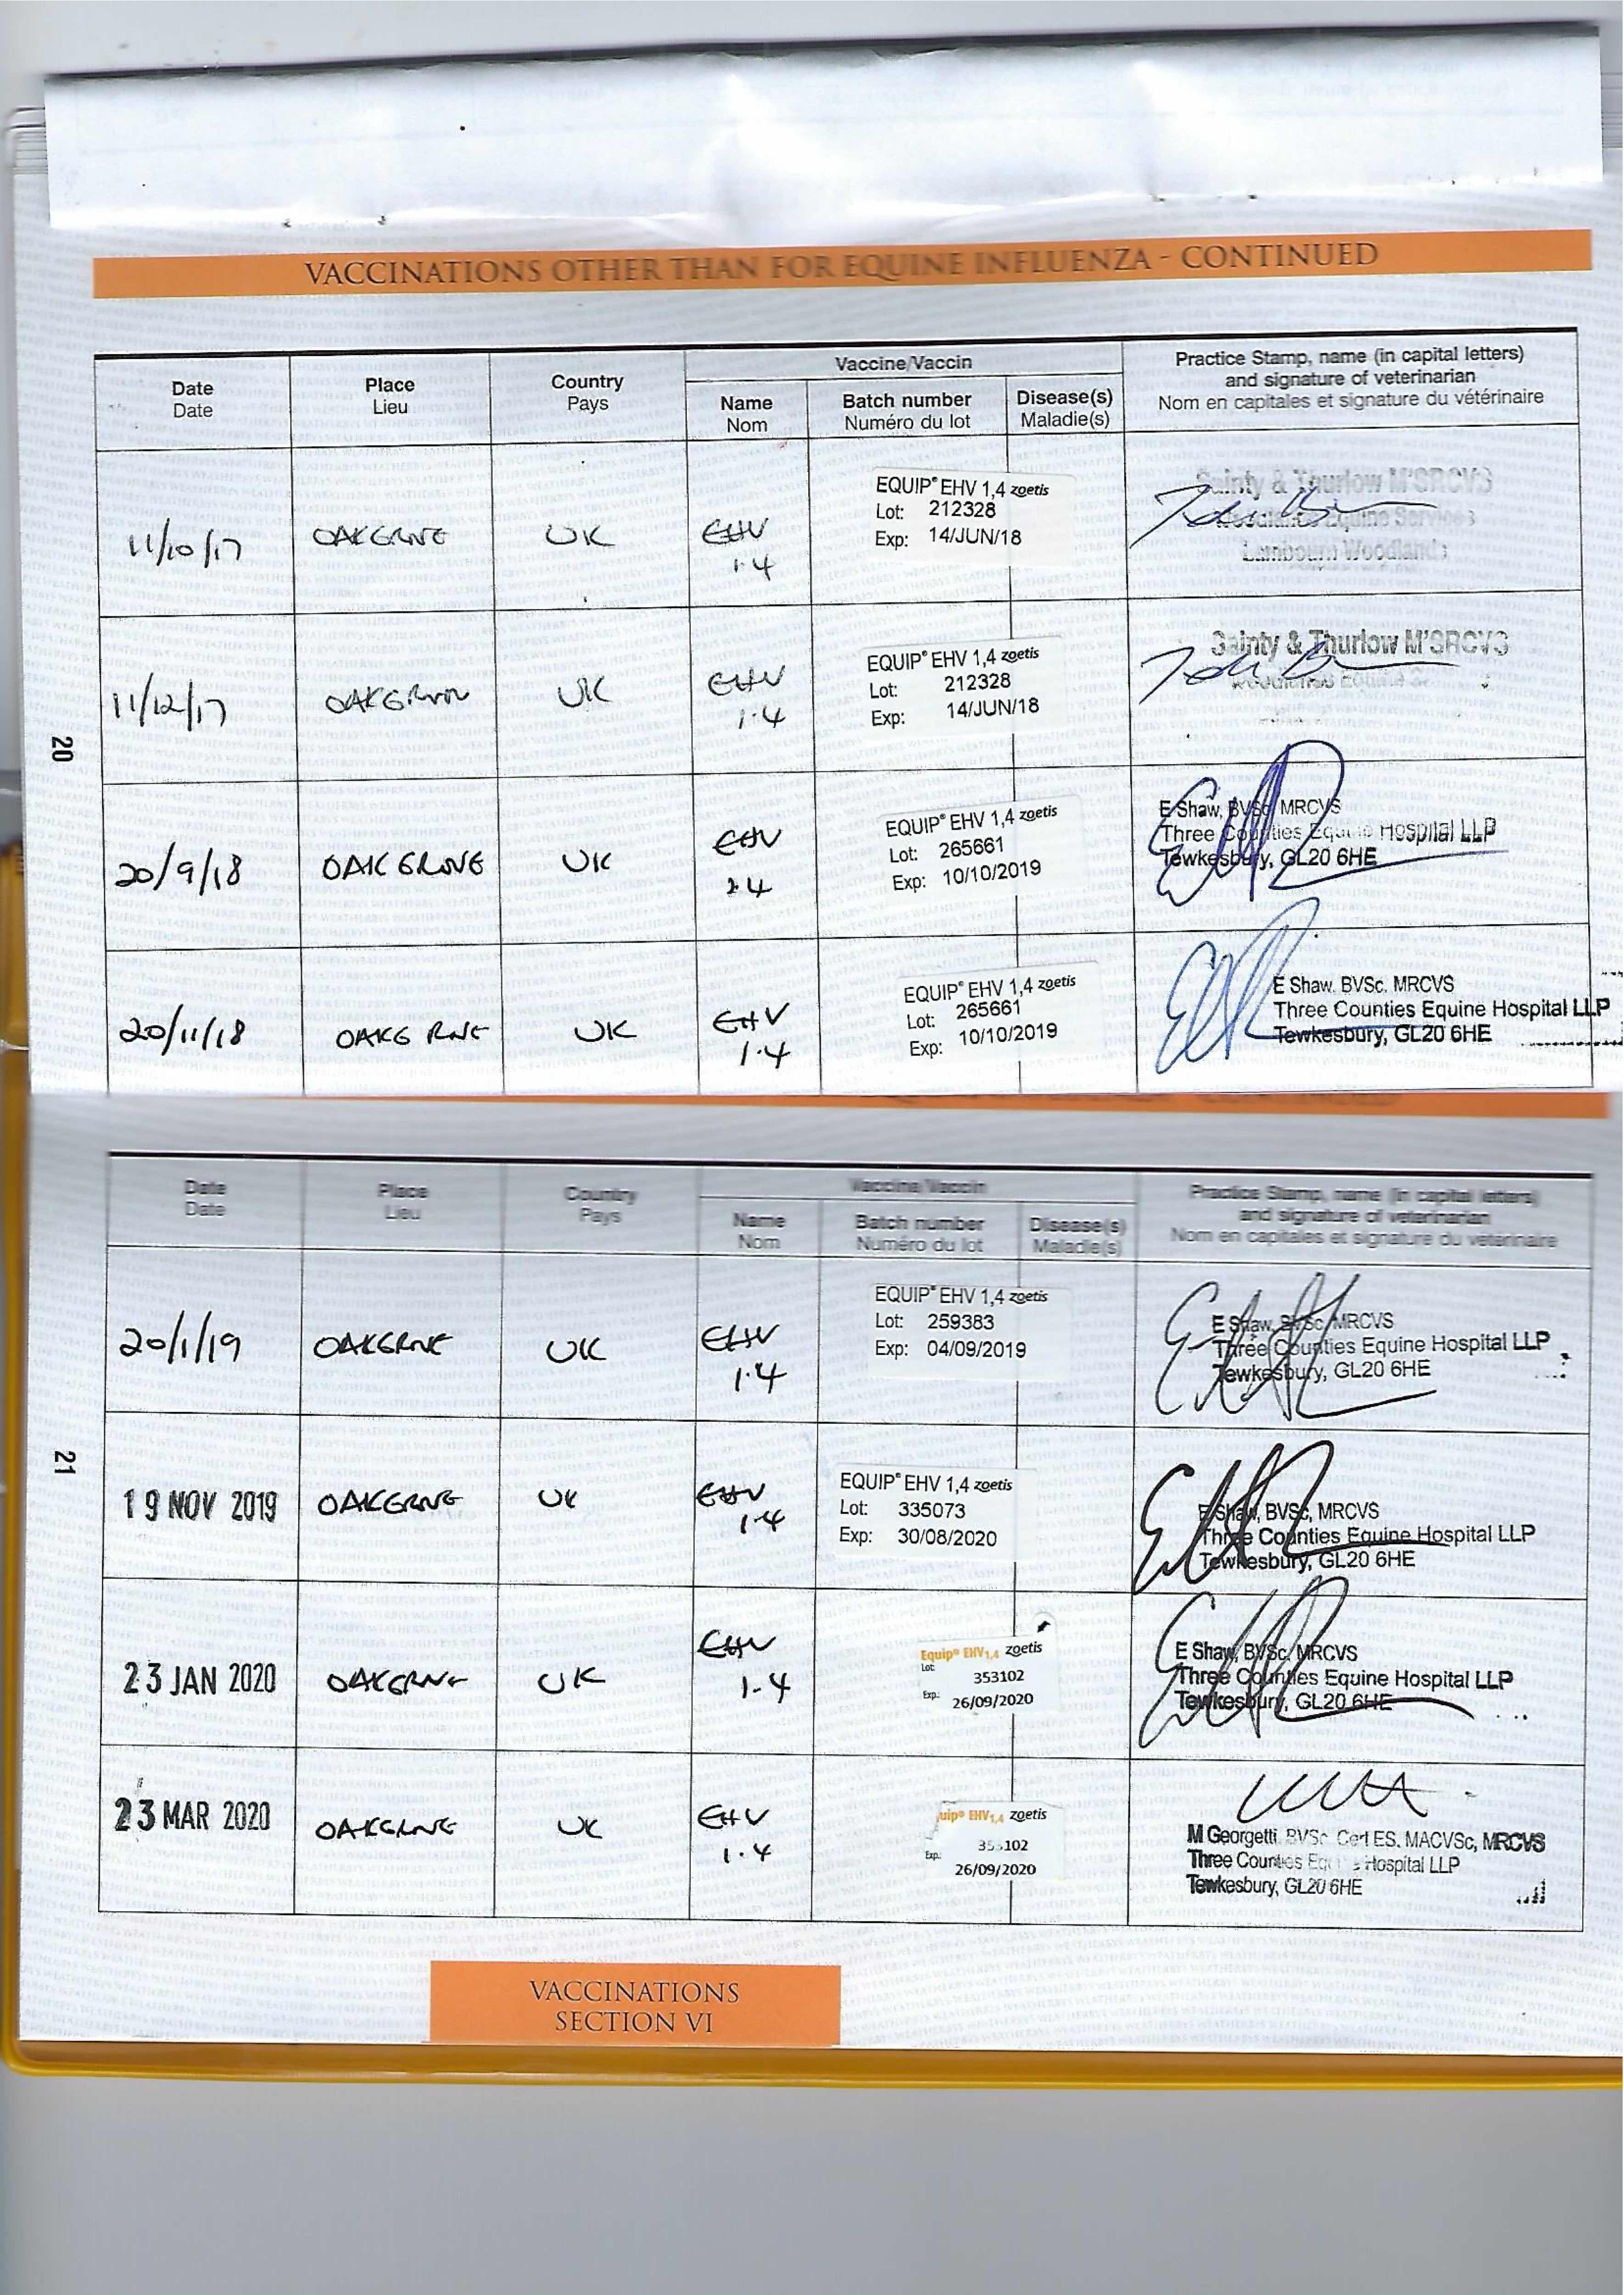 VACCINATIONS OTHER THAN FOR EQUINE INFLUENZA - CONTINUED
Date
Date
Place
Lieu
Country
Pays
Vaccine/Vaccin
Name
Nom
Batch number
Numéro du lot
Disease(s)
Maladie(s)
Practice Stamp, name (in capital letters)
and signature of veterinarian
Nom en capitales et signature du vétérinaire
11/10/17
OAKGROVE
UK
EHV
1.4
EQUIP® EHV 1,4 zoetis
Lot: 212328
Exp: 14/JUN/18
Sainty & Thurlow M'SRCVS
Woodlands Equine Services
Lambourn Woodlands
11/12/17
OAKGROVE
UK
EHV
1.4
EQUIP® EHV 1,4 zoetis
Lot: 212328
Exp: 14/JUN/18
Sainty & Thurlow M'SRCVS
20
20/9/18
OAKGROVE
UK
EHV
1.4
EQUIP® EHV 1,4 zoetis
Lot: 265661
Exp: 10/10/2019
E Shaw, BVSc, MRCVS
Three Counties Equine Hospital LLP
Tewkesbury, GL20 6HE
20/11/18
OAKGROVE
UK
EHV
1.4
EQUIP® EHV 1,4 zoetis
Lot: 265661
Exp: 10/10/2019
E Shaw. BVSc. MRCVS
Three Counties Equine Hospital LLP
Tewkesbury, GL20 6HE
Date
Date
Place
Lieu
Country
Pays
Vaccine/Vaccin
Name
Nom
Batch number
Numéro du lot
Disease(s)
Maladie(s)
Practice Stamp, name (in capital letters)
and signature of veterinarian
Nom en capitales et signature du vétérinaire
20/1/19
OAKGROVE
UK
EHV
1.4
EQUIP® EHV 1,4 zoetis
Lot: 259383
Exp: 04/09/2019
E Shaw, BVSc, MRCVS
Three Counties Equine Hospital LLP
Tewkesbury, GL20 6HE
21
19 NOV 2019
OAKGROVE
UK
EHV
1.4
EQUIP® EHV 1,4 zoetis
Lot: 335073
Exp: 30/08/2020
E Shaw, BVSc, MRCVS
Three Counties Equine Hospital LLP
Tewkesbury, GL20 6HE
23 JAN 2020
OAKGROVE
UK
EHV
1.4
Equip® EHV1,4 zoetis
Lot:
353102
Exp: 26/09/2020
E Shaw, BVSc, MRCVS
Three Counties Equine Hospital LLP
Tewkesbury, GL20 6HE
23 MAR 2020
OAKGROVE
UK
EHV
1.4
uip® EHV1,4 zoetis
353102
Exp: 26/09/2020
M Georgetti BVSc Cert ES, MACVSc, MRCVS
Three Counties Equine Hospital LLP
Tewkesbury, GL20 6HE
VACCINATIONS
SECTION VI